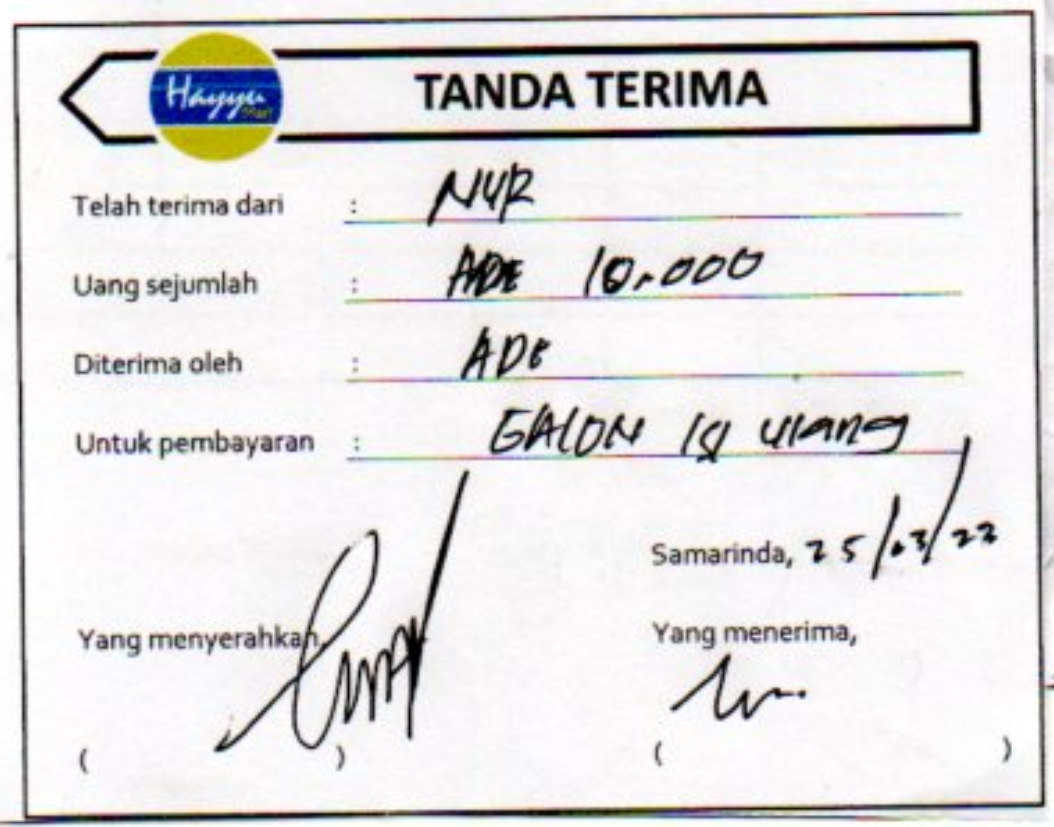 Hayyu Mart
TANDA TERIMA
Telah terima dari : NUR
Uang sejumlah : ADE 10.000
Diterima oleh : ADE
Untuk pembayaran : GALON ISI ulang
Samarinda, 25/03/22
Yang menyerahkan,
Yang menerima,
( ) ( )